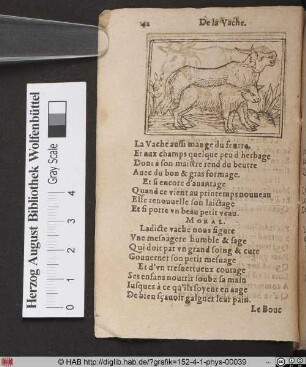 De la Vache.
La Vache aussi mange du
Et aux champs quelque peu d herbage
Dont a son maistre rend du beurre
Auec du bon & gras formage.
Et si encore d'auantage
Quand ce vient au printemps nouueau
Elle renouuelle son laictage
Et si porte vn beau petit veau.
MORAL.
Ladicte vache nous figure
Vne mesnagere humble & sage
Qui doit par vn grand soing & cure
Gouuerner son petit mesnage
Et d'vn tresvertueux courage
Ses enfans nourrir soubz sa main
Iusques à ce qu'ils soyent en aage
De bien sçauoir gaigner leur pain.
Le Bouc
Herzog August Bibliothek Wolfenbüttel
Gray Scale
0 1 2 3 4
© HAB http://diglib.hab.de/?grafik=152-4-1-phys-00039